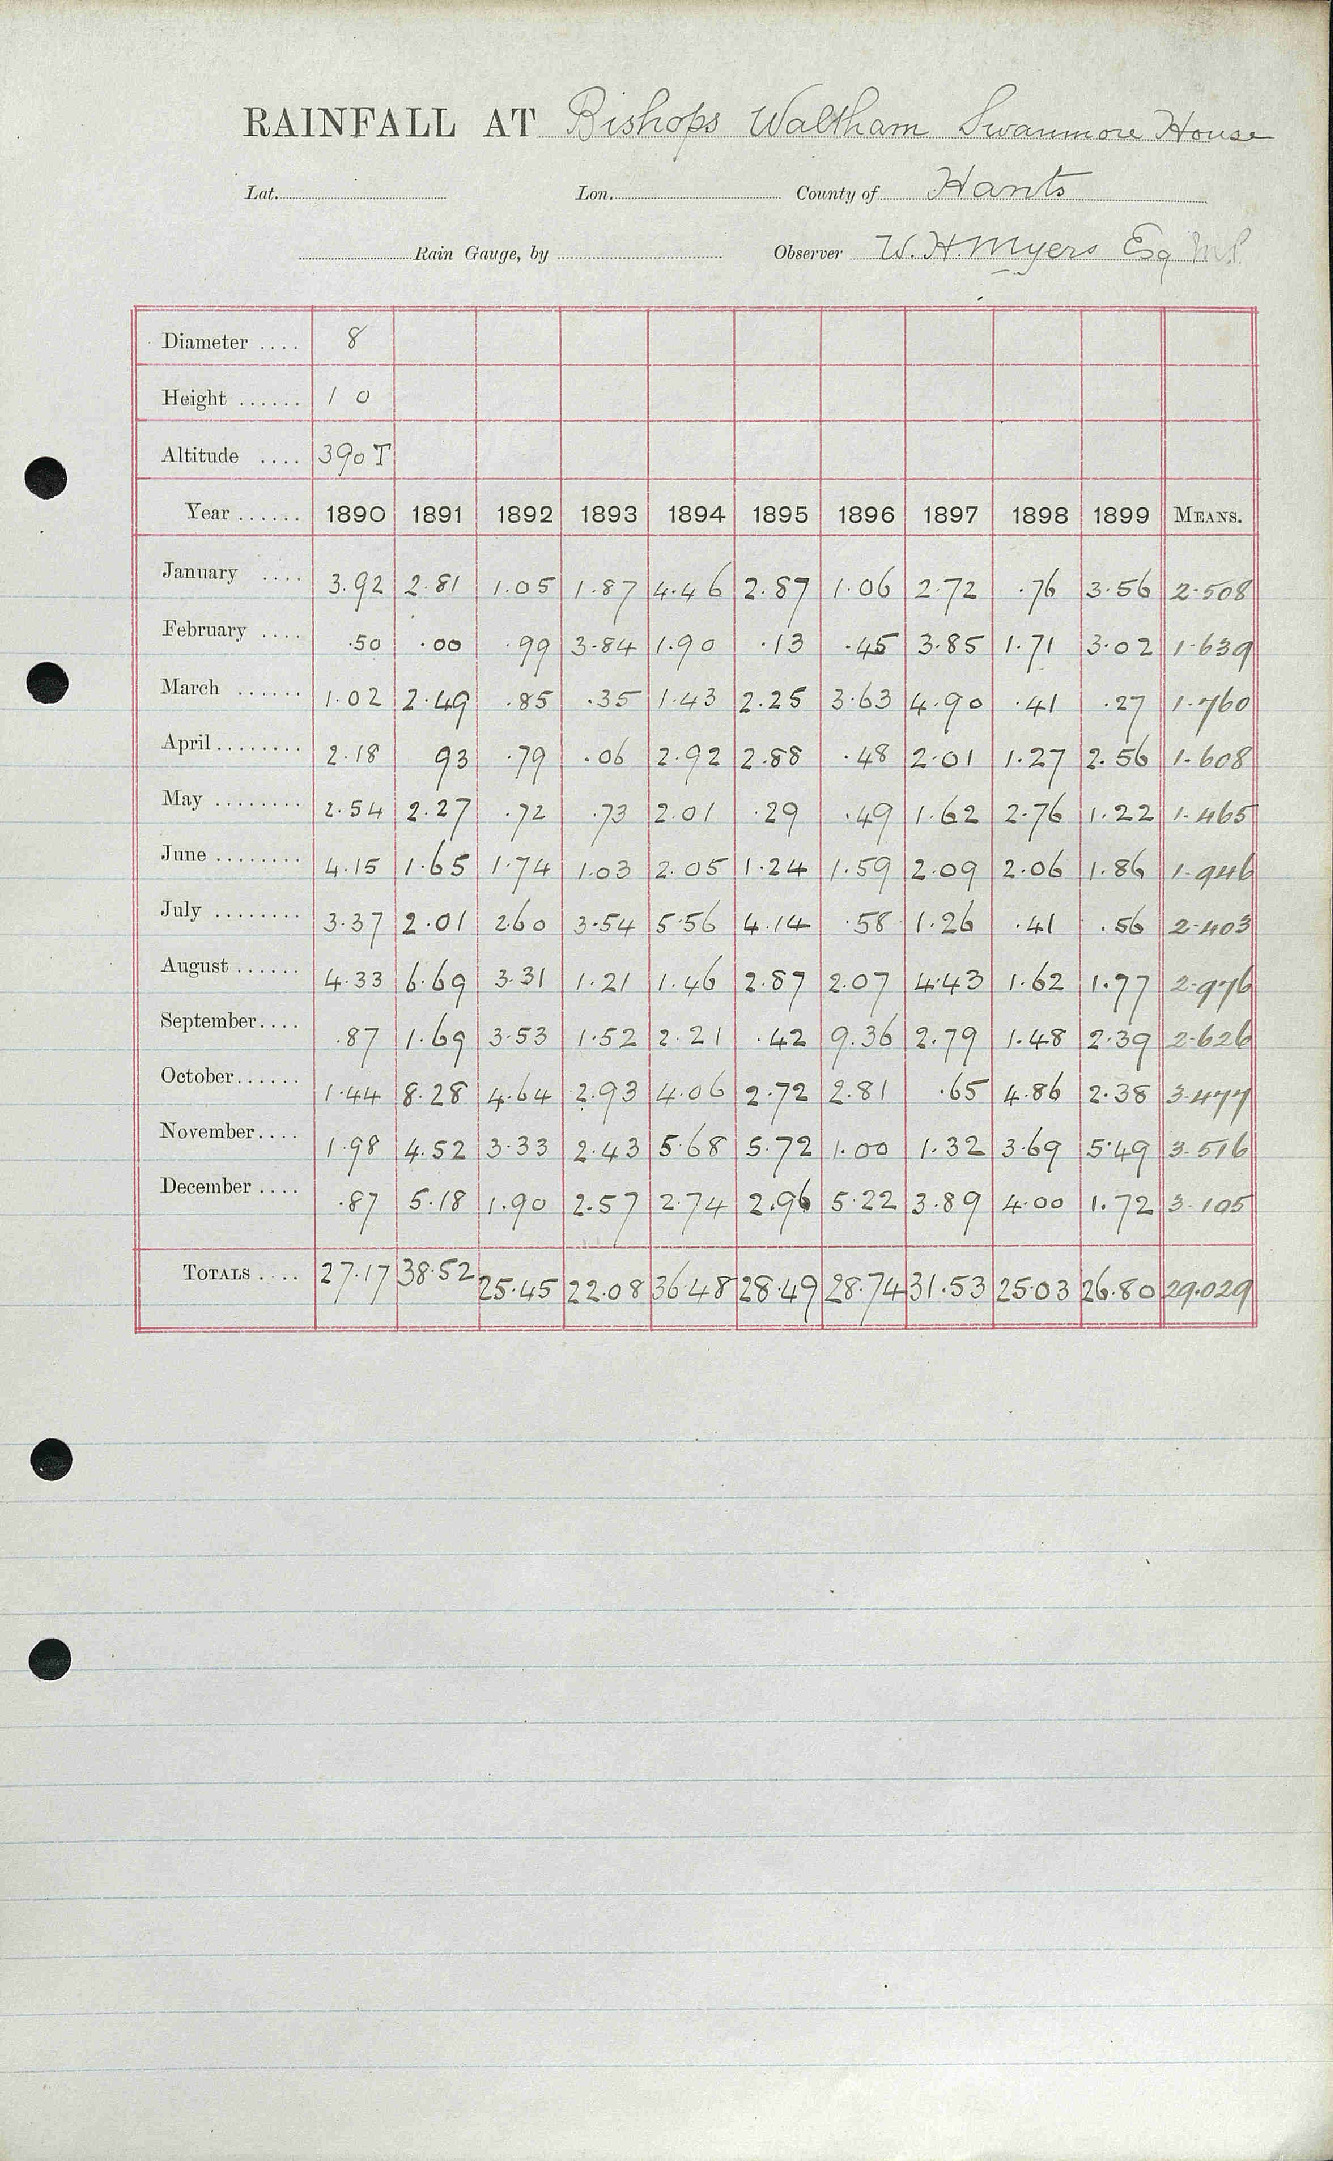 RAINFALL AT Bishops Waltham Swanmore House
Lat. Lon. County of Hants
Rain Gauge, by Observer W. H. Myers Esq M.P.
Diameter .... 8
Height ...... 1 0
Altitude .... 390 T
Year ...... 1890 1891 1892 1893 1894 1895 1896 1897 1898 1899 MEANS.
January .... 3.92 2.81 1.05 1.87 4.46 2.87 1.06 2.72 .76 3.56 2.508
February .... .50 .00 .99 3.84 1.90 .13 .45 3.85 1.71 3.02 1.639
March ...... 1.02 2.49 .85 .35 1.43 2.25 3.63 4.90 .41 .27 1.760
April ........ 2.18 93 .79 .06 2.92 2.88 .48 2.01 1.27 2.56 1.608
May ........ 2.54 2.27 .72 .73 2.01 .29 .49 1.62 2.76 1.22 1.465
June ........ 4.15 1.65 1.74 1.03 2.05 1.24 1.59 2.09 2.06 1.86 1.946
July ........ 3.37 2.01 260 3.54 5.56 4.14 .58 1.26 .41 .56 2.403
August ...... 4.33 6.69 3.31 1.21 1.46 2.87 2.07 4.43 1.62 1.77 2.976
September .... .87 1.69 3.53 1.52 2.21 .42 9.36 2.79 1.48 2.39 2.626
October ...... 1.44 8.28 4.64 2.93 4.06 2.72 2.81 .65 4.86 2.38 3.477
November .... 1.98 4.52 3.33 2.43 5.68 5.72 1.00 1.32 3.69 5.49 3.516
December .... .87 5.18 1.90 2.57 2.74 2.96 5.22 3.89 4.00 1.72 3.105
TOTALS .... 27.17 38.52 25.45 22.08 36.48 28.49 28.74 31.53 25.03 26.80 29.029